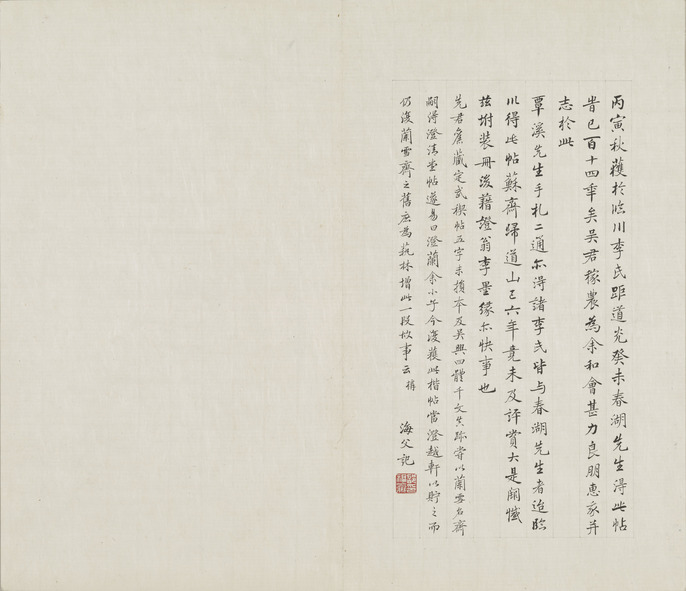 丙寅秋蒦於臨川李氏距道光癸未春湖先生淂此帖
峕已百十四年矣吴君稼農為余和會甚力良朋惠我并
志於此
覃溪先生手札二通尒淂諸李氏皆与春湖先生者迨臨
川得此帖蘇齋歸道山已六年竟未及評賞大是闕憾
茲坿裝冊後藉證翁李墨緣尒快事也
先君舊藏定武禊帖五字未損本及吳興四體千文真跡嘗以蘭雪名齋
嗣得澄清堂帖遂易曰澄蘭余小子今復蒦此楷帖當澄越軒以貯之而
仍復蘭雪齋之舊庶為蓺林增此一段故事云
海父記